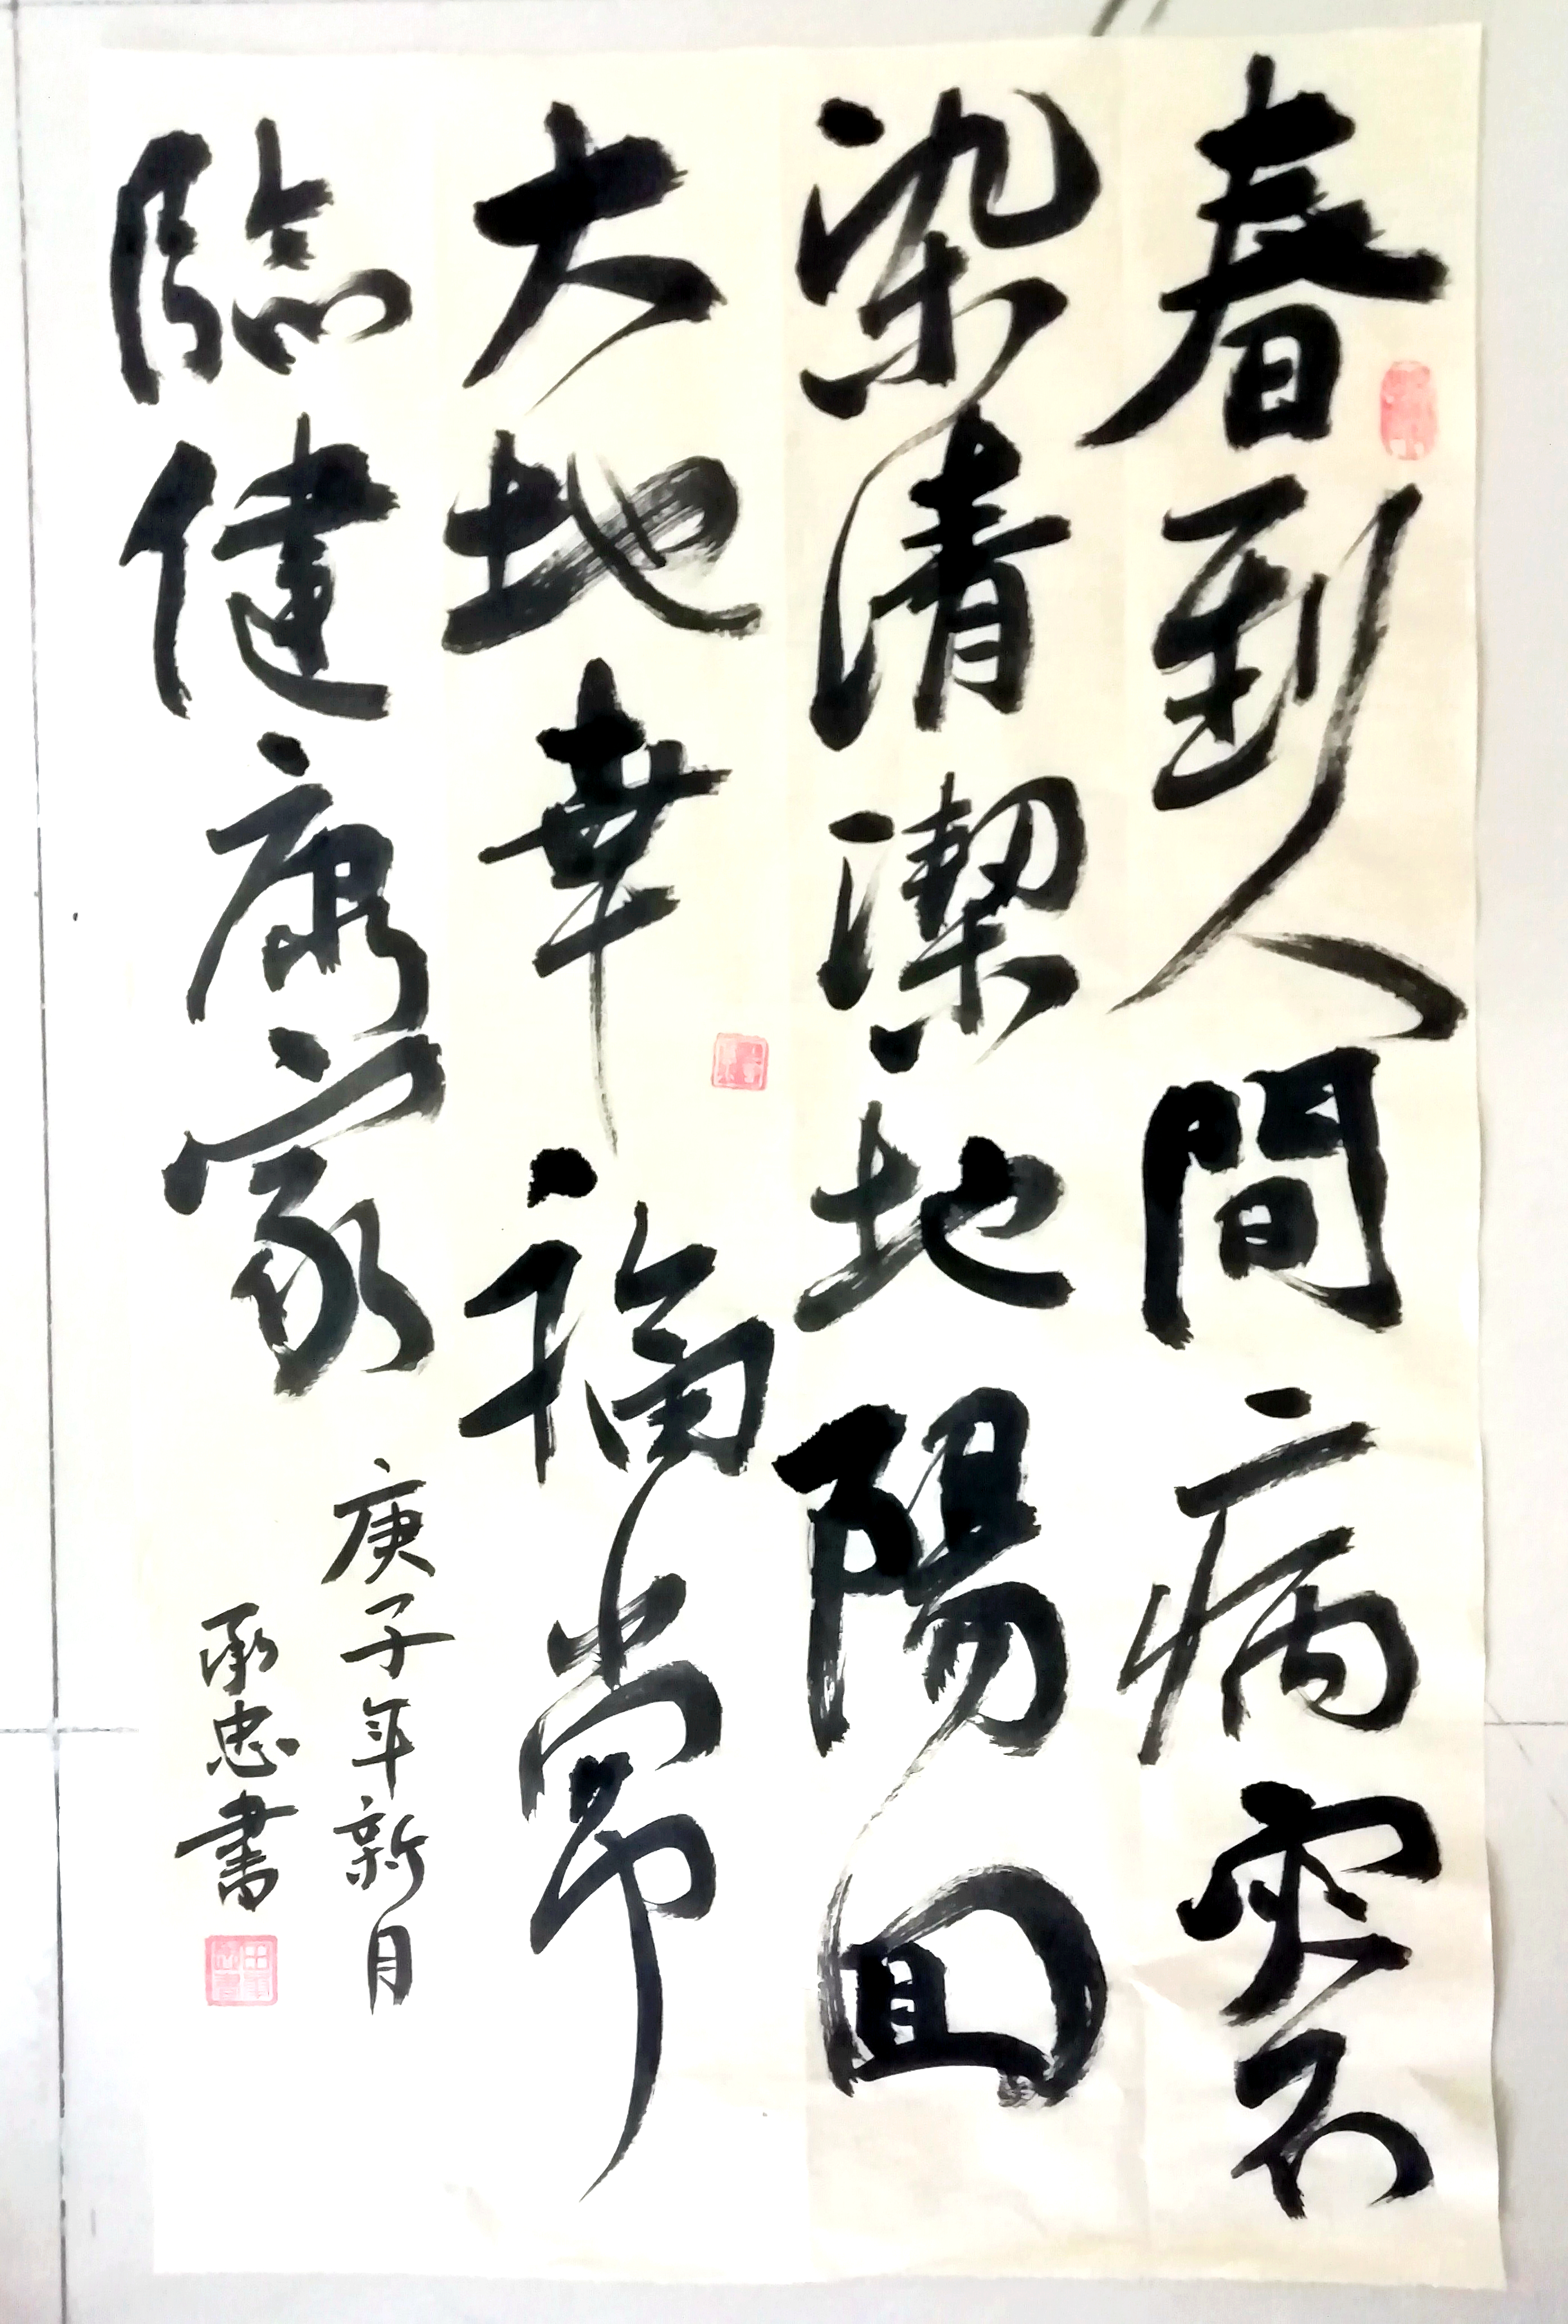 春到人間病突不
染清潔地陽回
大地幸福常
臨健康家
庚子年新月
承忠書